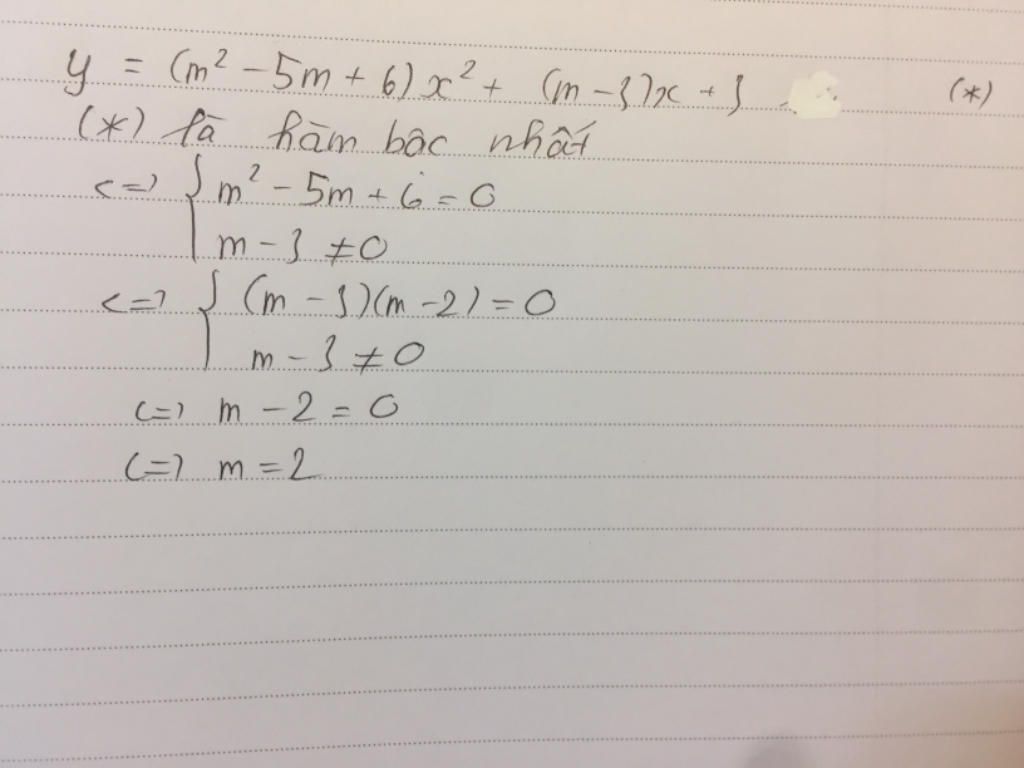 y = (m² - 5m + 6)x² + (m - 3)x + 3 (*)
(*) là hàm bậc nhất
<=> { m² - 5m + 6 = 0
m - 3 ≠ 0
<=> { (m - 3)(m - 2) = 0
m - 3 ≠ 0
<=> m - 2 = 0
<=> m = 2